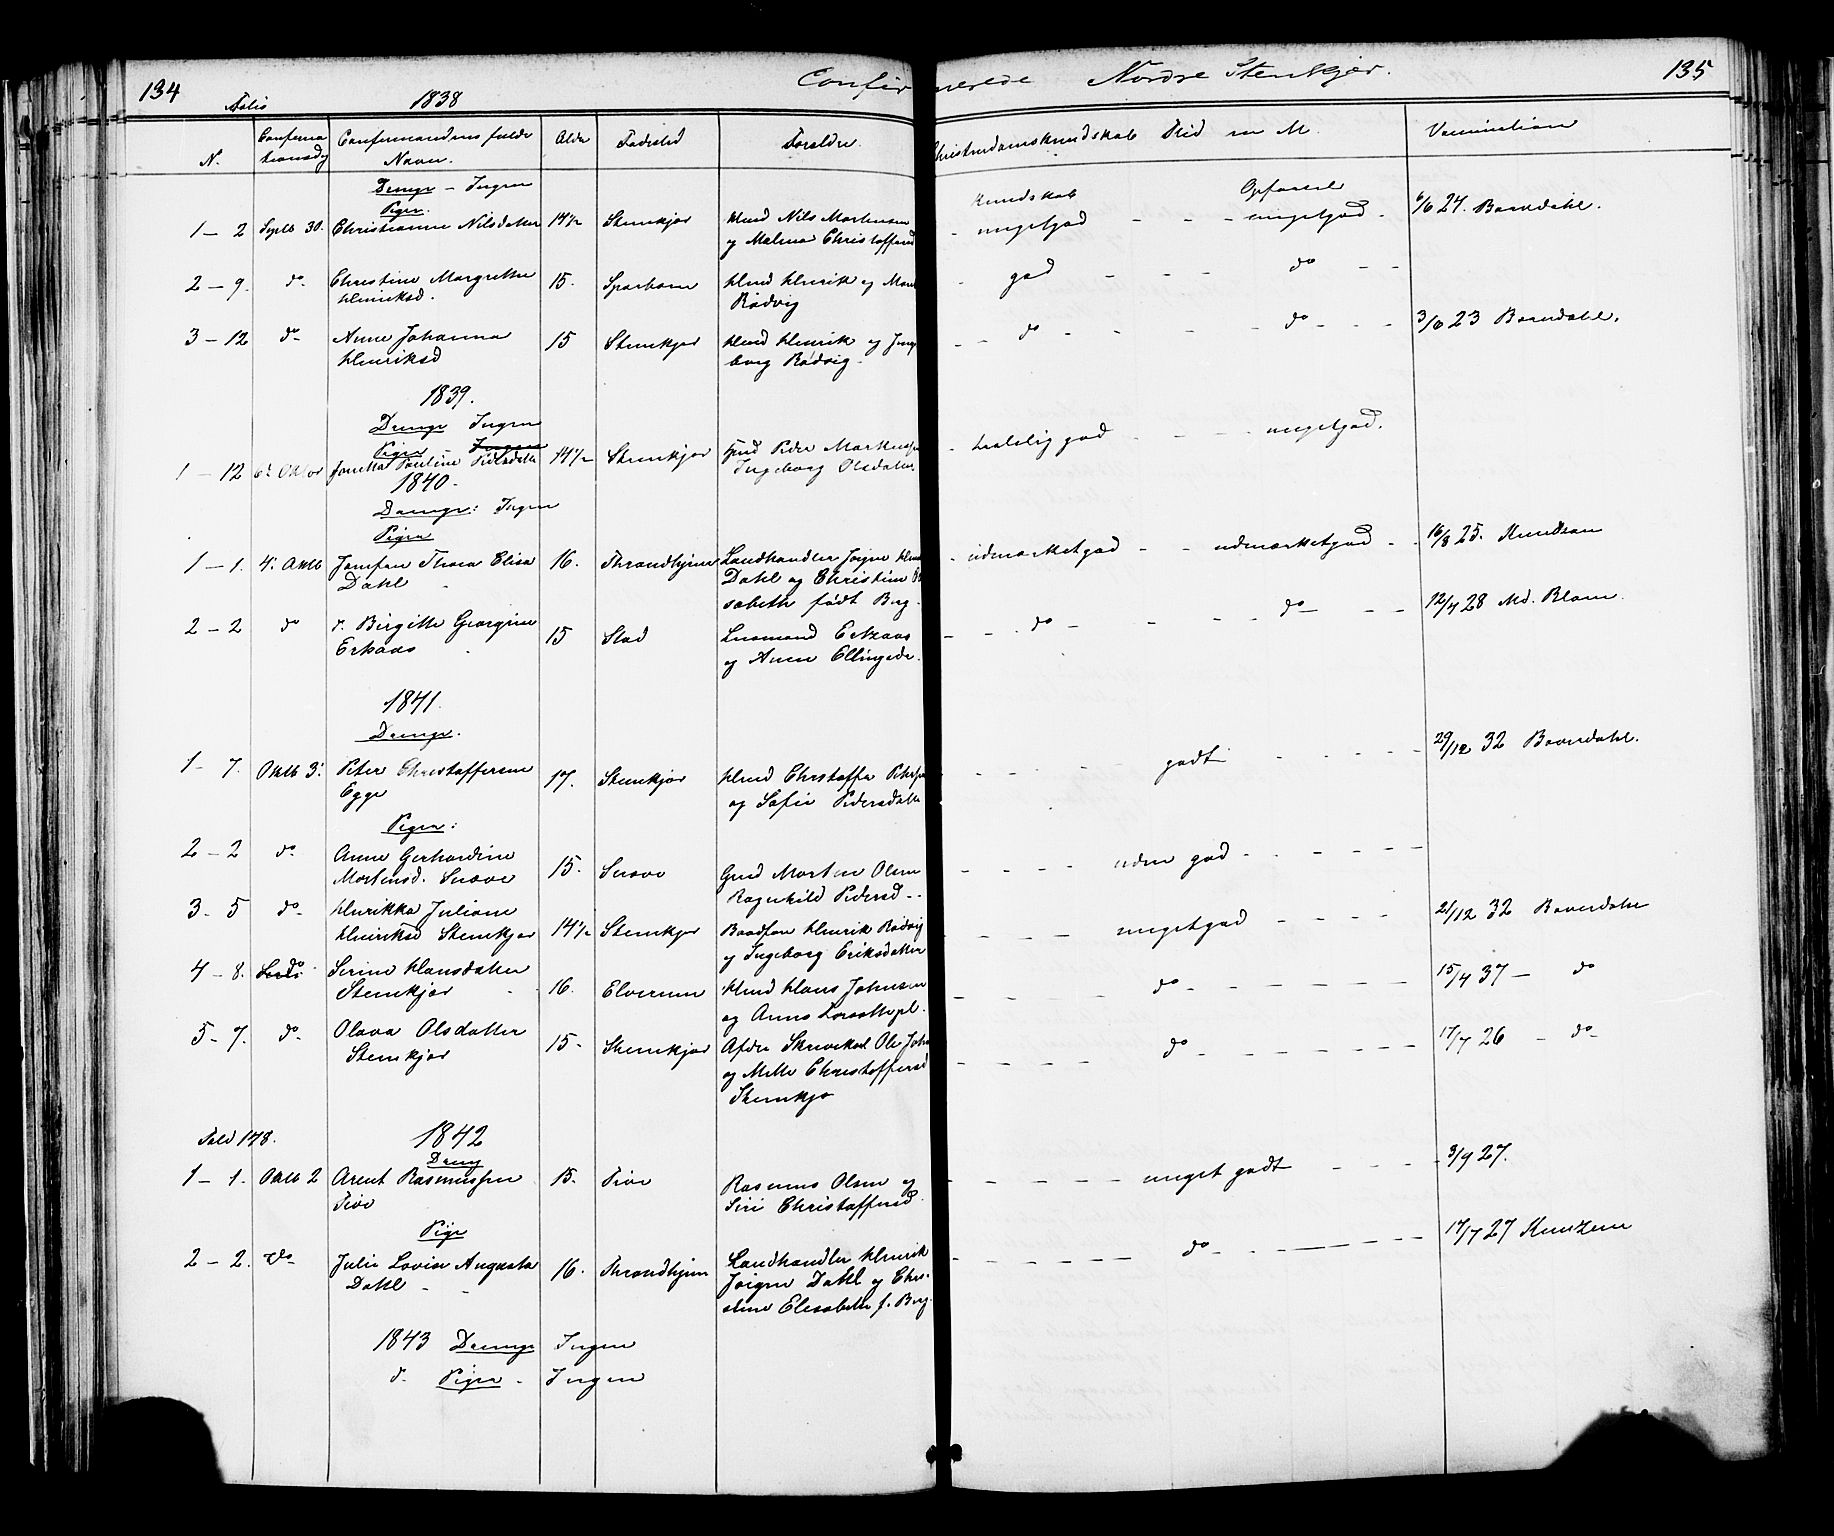 134 Confirmerede Nordre Stenkjer. 135
Folio 1838
N. Confermationsdg Confermandens fulde Navn. Alder Fødested Forældre Christendomskundskab Flid m M. Vaccination
Drenge - Ingen
Piger. Kundskab Opførsel
1 - 2 Septb 30. Christianna Nilsdatter 14 1/2 Stenkjær Huusd Nils Mortensen meget god - - - meget god - 6/6 24. Bovrdahl.
og Malena Christoffersd
2 - 9. do Christine Margrethe 15. Sparboen Huusd Henrik og god - - - do - -
Henriksd. Rødvig
3 - 12 do Anne Johanna 15 Stenkjær Huusd Henrik og Inge - - do - - - do - - - 3/6 23 Bovrdahl.
Henriksd borg Rødvig.
1839.
Drenge Ingen
Piger - Ingen
1 - 12 6t Oktor Pauline Pedersdatter 14 1/2 Stenkjær Peder Mortensen - taalelig god - - - meget god.
Ingeborg Olsdatter
1840.
Drenge: Ingen
Piger
1 - 1. 4. Oktb Jomfru Thora Elisa 16. Throndhjem Landhandler Jørgen - udmærket god - - udmærket god - - 16/8 25. Knudson
Dahl Dahl og Christine
sabeth født Berg.
2 - 2 do d. Birgitte Georgine 15 Stod Lensmand - - do - - - do - - - 12/4 28 Md. Blom.
og Anne Ellingsdr.
1841.
Drenge.
1 - 7. Oktb 3. Peter Christoffersen 17. Stenkjær Huusd Christoffer - - - godt - - - 29/12 32 Bovrdahl.
Egge og Sofie Pedersdatter
Piger:
2 - 2 do Anne Gerhardine 15. Snove Grd Morten Olsen - - - god - - -
Mortensd. Snove Ragnhild Pedersd - -
3 - 5 do Henrikka Juliane 14 1/2 Stenkjær Baadsm Henrik Rødvig - - - meget god - - - 21/12 32 Bovrdahl
Henriksd Stenkjær og Ingeborg Eriksdatter
4 - 8. do Serine Hansdatter 16. Elverum Huusd Hans Johnsen - - - do - - - 15/4 37 - do
Stenkjær og Anne
5 - 7. do Olava Olsdatter 15 - Stenkjær Afdøe Ole John - - - do - - - 17/7 26 - do
Stenkjær og Mette Christoffersd
Stenkjær
Fold 178. 1842
Dreng
1 - 1. Oktb 2 Arent Rasmussen 15. Rasmus Olsen og - - - meget godt - - - 3/9 27.
Siri Christoffersd.
Pige
2 - 2. do Julie Lovise Augusta 16. Throndhjem Landhandler Henrik - - - do - - - 17/7 27
Dahl Jørgen Dahl og Chri-
stine Elisabeth f. Berg.
1843 Drenge Ingen
d. Piger - Ingen